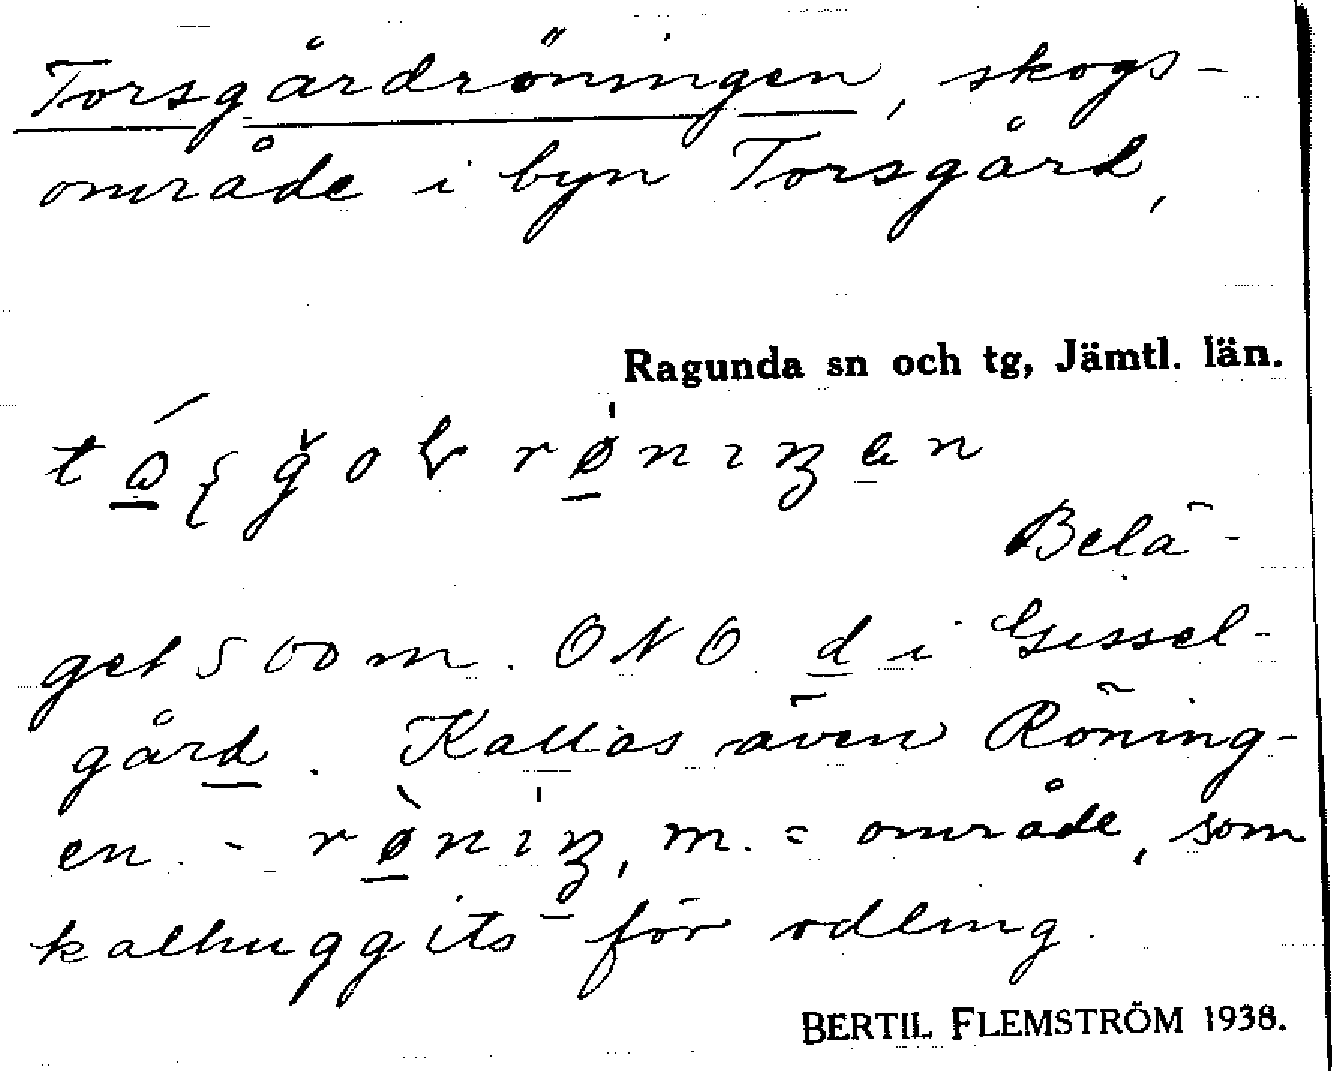 Torsgårdröningen, skogs-
område i byn Torsgård,
Ragunda sn och tg, Jämtl. län.
Belä-
get 500 m. ONO d i Gissel-
gård. Kallas även Röning-
en. - m. = område, som
kalhuggits för odling.
BERTIL FLEMSTRÖM 1938.